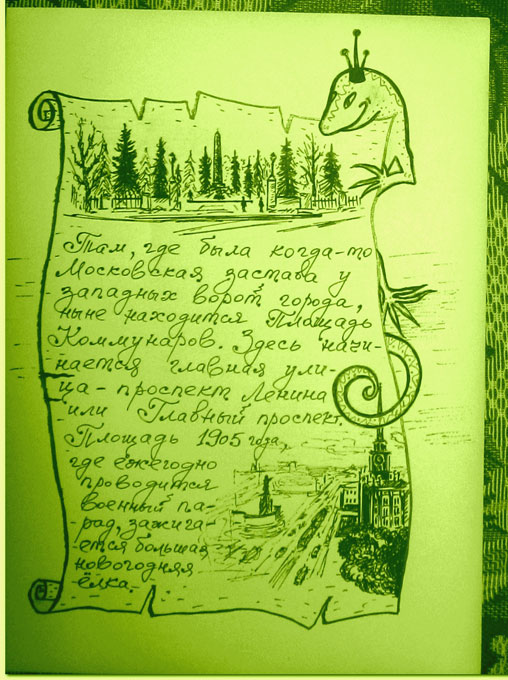 Там, где была когда-то
Московская застава у
западных ворот города,
ныне находится Площадь
Коммунаров. Здесь начи-
нается главная ули-
ца - проспект Ленина
или Главный проспект.
Площадь 1905 года,
где ежегодно
проводится
военный па-
рад, зажига-
ется большая
новогодняя
ёлка.